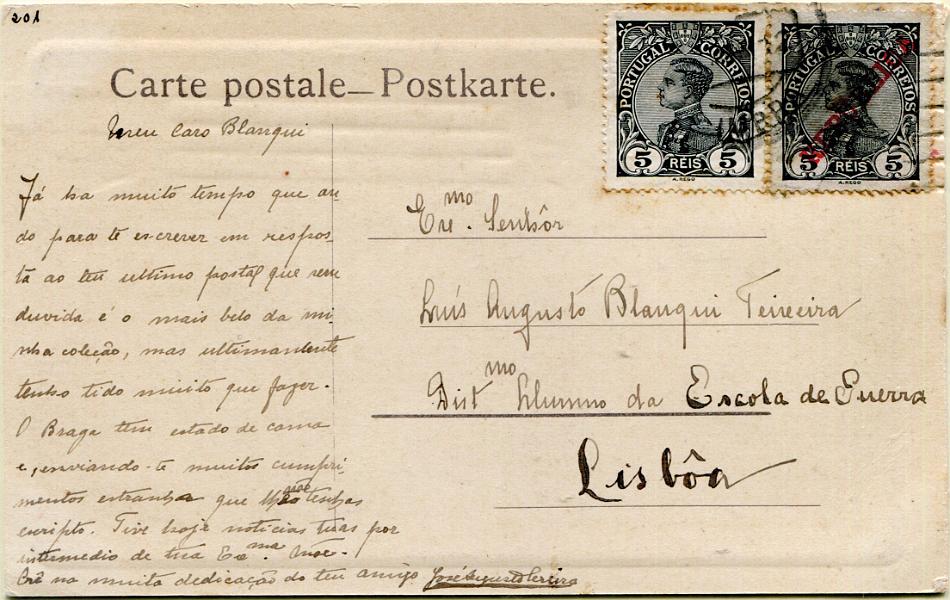 201
Carte postale – Postkarte.
PORTUGAL CORREIOS
5 REIS 5
A. REGO
PORTUGAL CORREIOS
REPUBLICA
5 REIS 5
A. REGO
Meu Caro Blanqui
Já ha muito tempo que an-
do para te escrever em respos-
ta ao teu ultimo postal que sem
duvida é o mais belo da mi-
nha coleção, mas ultimamente
tenho tido muito que fazer.
O Braga tem estado de cama
e, enviando-te muitos cumpri-
mentos estranha que não tenhas
escripto. Tive hoje noticias tuas por
intermedio de tua Exma. Mãe.
Crê na muita dedicação do teu amigo José Augusto Pereira
Exmo. Senhôr
Luís Augusto Blanqui Teixeira
Distmo Alumno da Escola de Guerra
Lisbôa